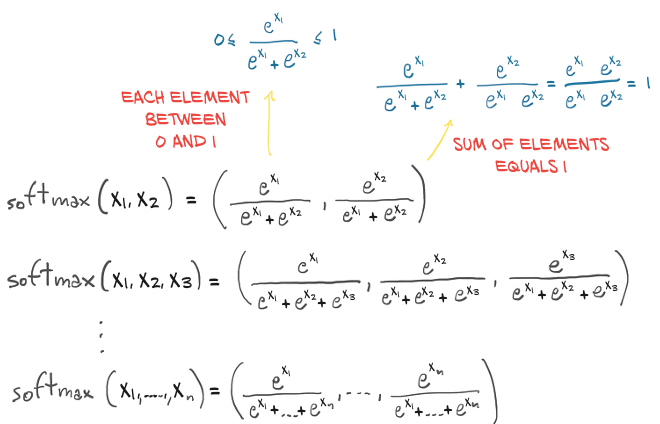 0 ≤ e^x₁ / (e^x₁ + e^x₂) ≤ 1
e^x₁ / (e^x₁ + e^x₂) + e^x₂ / (e^x₁ e^x₂) = (e^x₁ e^x₂) / (e^x₁ e^x₂) = 1
EACH ELEMENT
BETWEEN
0 AND 1
SUM OF ELEMENTS
EQUALS 1
softmax (x₁, x₂) = (e^x₁ / (e^x₁ + e^x₂) , e^x₂ / (e^x₁ + e^x₂))
softmax (x₁, x₂, x₃) = (e^x₁ / (e^x₁ + e^x₂ + e^x₃) , e^x₂ / (e^x₁ + e^x₂ + e^x₃) , e^x₃ / (e^x₁ + e^x₂ + e^x₃))
⋮
softmax (x₁, ..., xₙ) = (e^x₁ / (e^x₁ + ... + e^xₙ) , ... , e^xₙ / (e^x₁ + ... + e^xₙ))